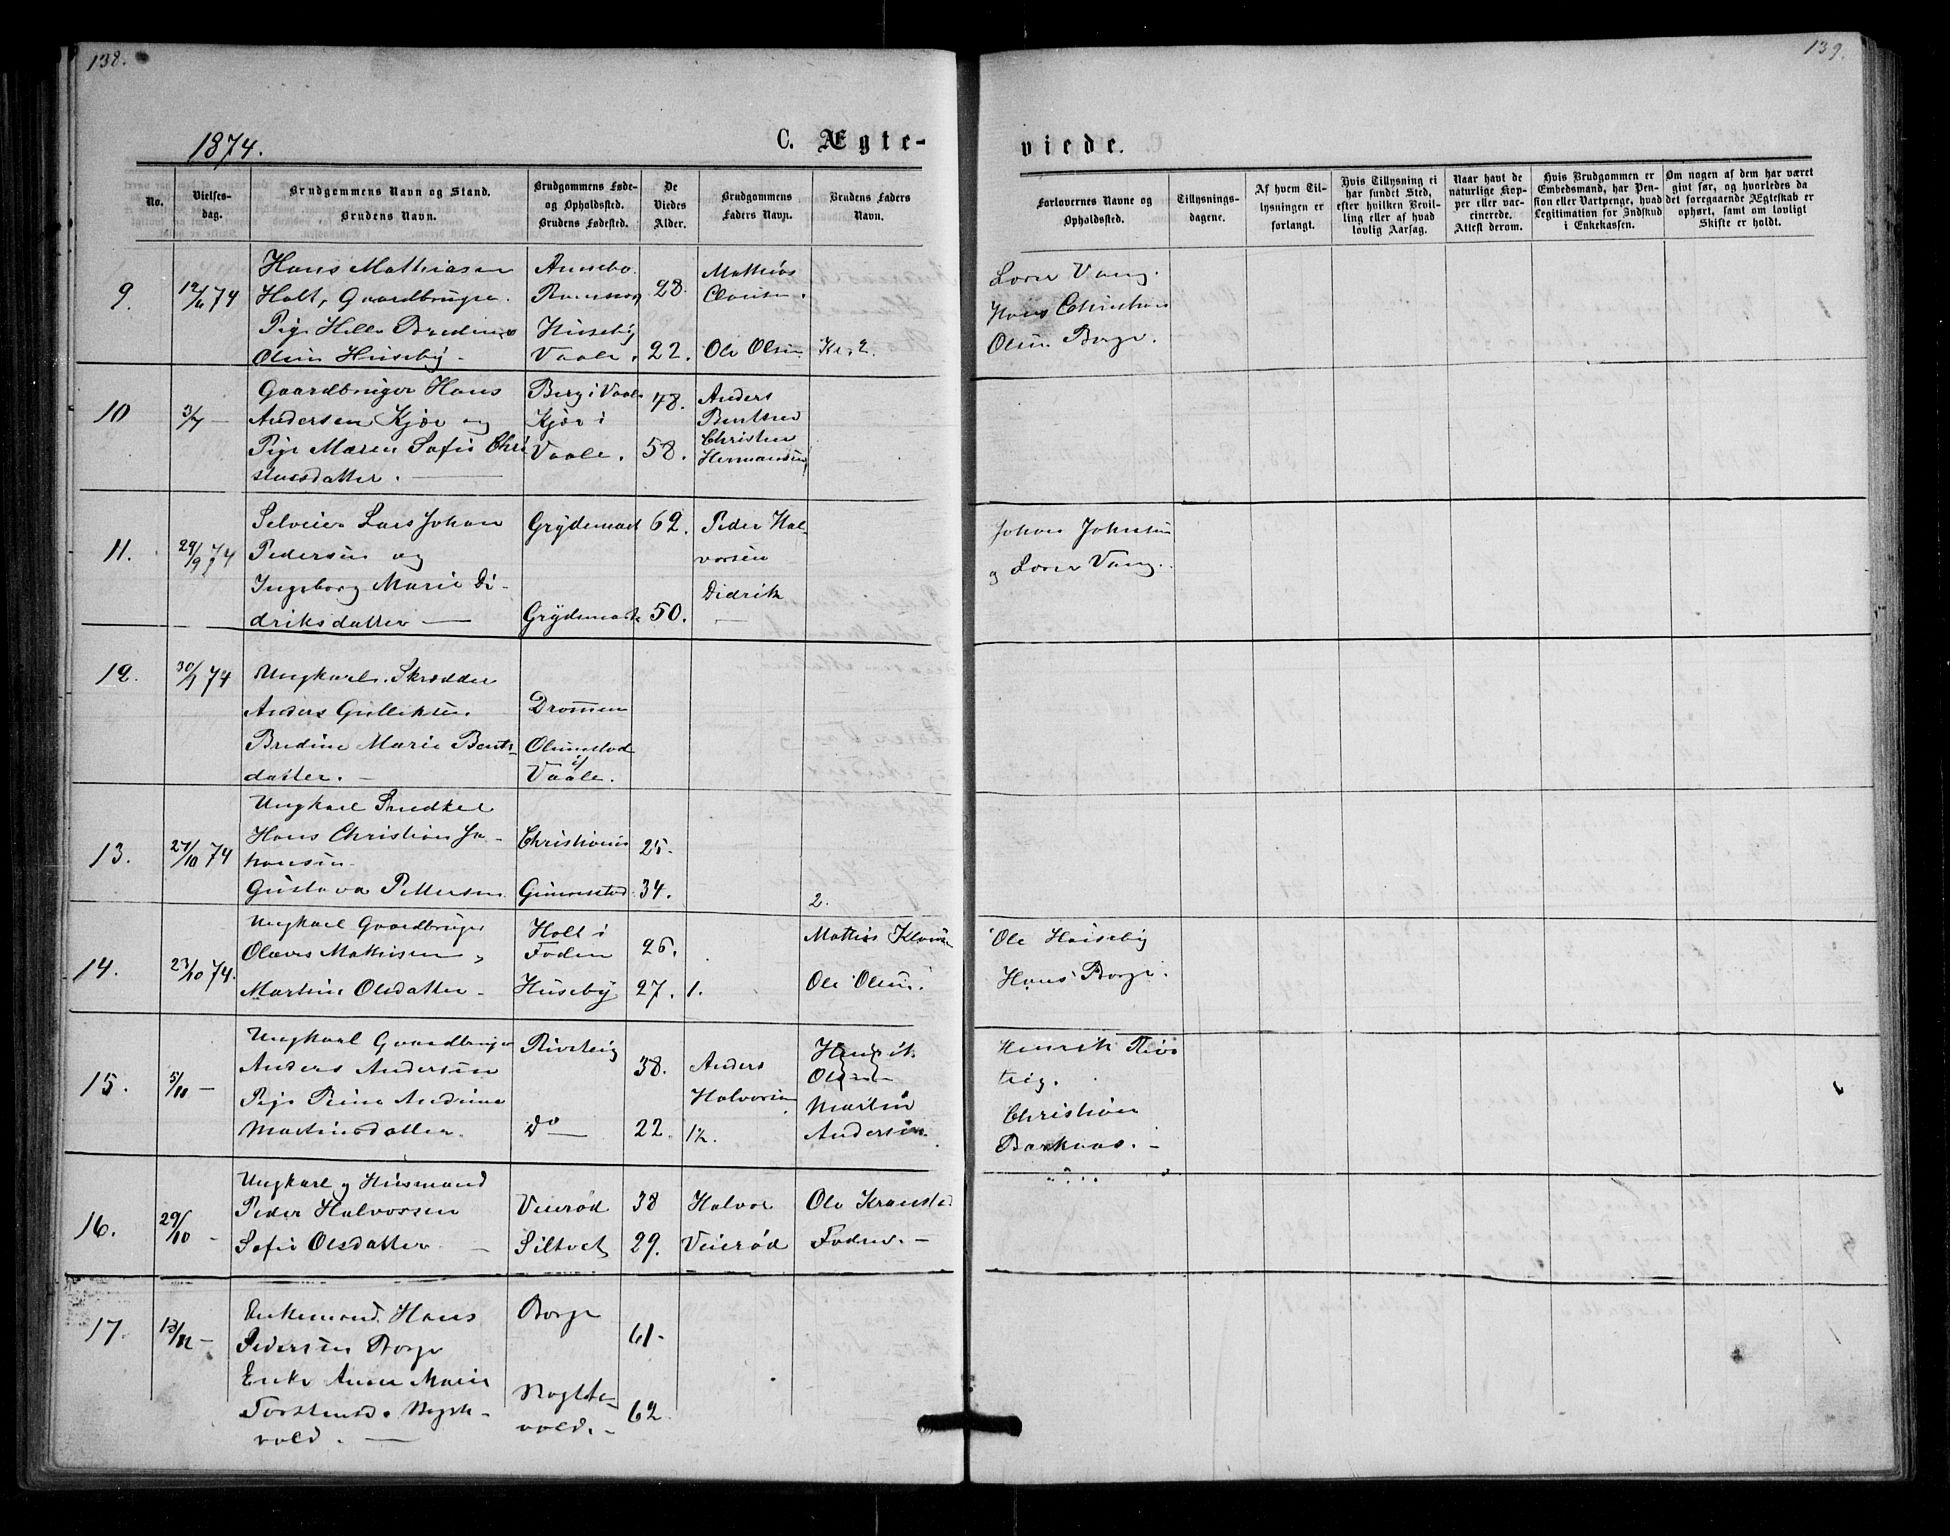 138.
139.
1874.
C. Ægte-
viede.
No.
Vielses-
dag.
Brudgommens Navn og Stand.
Brudens Navn.
Brudgommens Føde-
og Opholdssted.
Brudens Fødested.
De
Viedes
Alder.
Brudgommens
Faders Navn.
Brudens Faders
Navn.
Forlovernes Navne og
Opholdssted.
Tillysnings-
dagene.
Af hvem Til-
lysningen er
forlangt.
Hvis Tillysning ei
har fundet Sted,
efter hvilken Bevil-
ling eller af hvad
lovlig Aarsag.
Naar havt de
naturlige Kop-
per eller vac-
cinerede.
Attest derom.
Hvis Brudgommen er
Embedsmand, har Pen-
sion eller Vartpenge, hvad
Legitimation for Indskud
i Enkekassen.
Om nogen af dem har været
givt før, og hvorledes da
det foregaaende Ægteskab er
ophørt, samt om lovligt
Skifte er holdt.
9. 12/6 74
Hans Mathiasen
Holt, Gaardbruger
Pige Helle Bredine
Olsen Huseby -
Huseby
Vaale.
28.
22.
Mathias
Clausen.
Ole Olsen
Lorer Vang.
Hans Christian
Olsen Borge.
10 3/7 -
Gaardbruger Hans
Andersen Kjær og
Pige Maren Sofie Chri
stiansdatter. -
Berg i Vaale
Kjær i
Vaale.
48.
58.
Anders
Bentsen
Christen
Hermansen
11. 29/9 74
Selveier Lars Johan
Pedersen og
Ingeborg Marie Di-
driksdatter -
Grydemoest
Grydemoest
62.
50.
Peder Hal-
vorsen
Didrik
-
Johan Johnsen
og Lorer Vang.
12. 30/9 74
Ungkarl. Skrædder
Anders Gulliksen
Bredine Marie Bents-
datter. -
Drammen
Olumstad
i
Vaale.
13. 27/10 74
Ungkarl Snedker
Hans Christian Jo-
hansen -
Gustava Pettersen
Christiania
Gunnestad
25.
34.
2.
14. 23/10 74.
Ungkarl Gaardbruger
Olaves Mathisen
Martine Olsdatter -
Holt i
Foden
Huseby
26.
27.
1.
Mathis Klausen
Ole Olsen.
Ole Huseby
Hans Borge.
15. 5/10 -
Ungkarl Gaardbruger
Anders Andersen
Pige Rine Andrine
Martinsdatter.
Riveteig
do -
38.
22.
Anders
Halvorsen
12.
Henrik
Olsen
Martin
Andersen
Henrik Rive
teig.
Christian
Barkaas. -
16. 29/10 -
Ungkarl og Husmand
Peder Halvorsen
Sofie Olsdatter -
Veierød
Siltvet
38
29.
Halvor
Veierød
Ole
Foden. -
17. 13/12 -
Enkemand Hans
Pedersen Borge
Enke Anne Marie
vold. -
Borge
vold. -
61.
62.